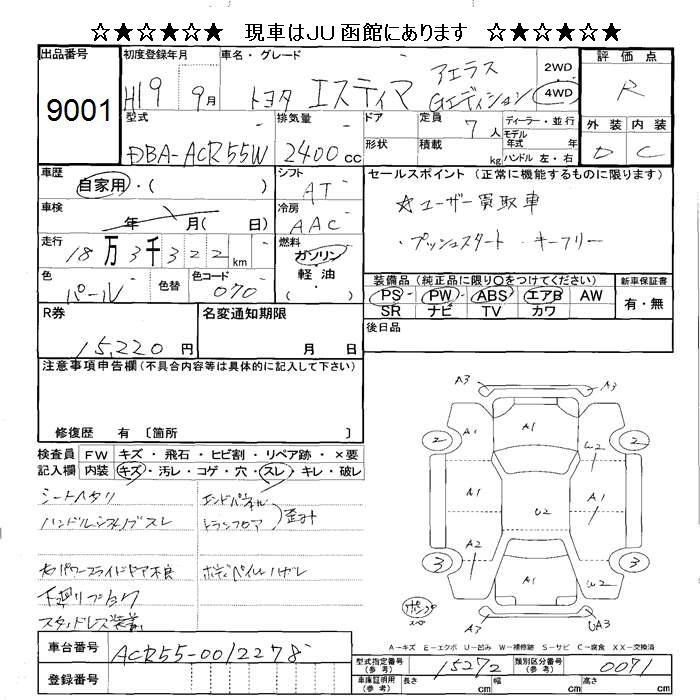 ☆★☆★☆★ 現車はJU函館にあります ☆★☆★☆★
出品番号 初度登録年月 車名・グレード 評価点
9001 H19 9月 トヨタ エスティマ アエラス Gエディション 2WD 4WD R
型式 排気量 ドア 定員 7人 ディーラー・並行 外装 内装
モデル
DBA-ACR55W 2400cc 形状 積載 kg 年式 年 D C
ハンドル 左・右
車歴 シフト セールスポイント (正常に機能するものに限ります)
自家用・( ) AT
☆ユーザー買取車
車検 年 月( 日) 冷房 AAC
・プッシュスタート ・キーフリー
走行 18万3千322km 燃料 ガソリン
色 色替 色コード 軽油 装備品 (純正品に限り○をつけてください) 新車保証書
パール 070 ( ) PS・PW・ABS・エアB AW 有・無
SR ナビ TV カワ
R券 名変通知期限 後日品
15,220円 月 日
注意事項申告欄(不具合内容等は具体的に記入して下さい)
修復歴 有 〔箇所 〕
検査員 FW キズ・飛石・ヒビ割・リペア跡・×要
記入欄 内装 キズ・汚レ・コゲ・穴・スレ・キレ・破レ
シートヘタリ エンドパネル
ハンドルシフトノブスレ トランクフロア 歪ミ
右パワースライドドア不良 ボディペイントハガレ
下廻リ
スタッドレス装着
A3 A3
2 A1 A1 W2 2
A1 U2 A1
3 A2 A1 W2 3
A3 UA3
A-キズ E-エクボ U-凹み W-補修跡 S-サビ C-腐食 XX-交換済
車台番号 ACR55-0012278
登録番号
型式指定番号(参考) 15272 類別区分番号(参考) 0071
車庫証明用(参考) 長さ cm 幅 cm 高さ cm